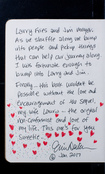 Lorry Fires and Jan Burgh.
As we shuffle along we bump
into people and pickup things
that can help our journey along.
I was fortunate enough to
bump into Lorry and Jan.
Finally... this book wouldn't be
possible without the love and
Encouragement of the Sequel,
my wife Laury - the original
my Endurance and love of
my life. This one's for you
Sweetie
Jan 2017